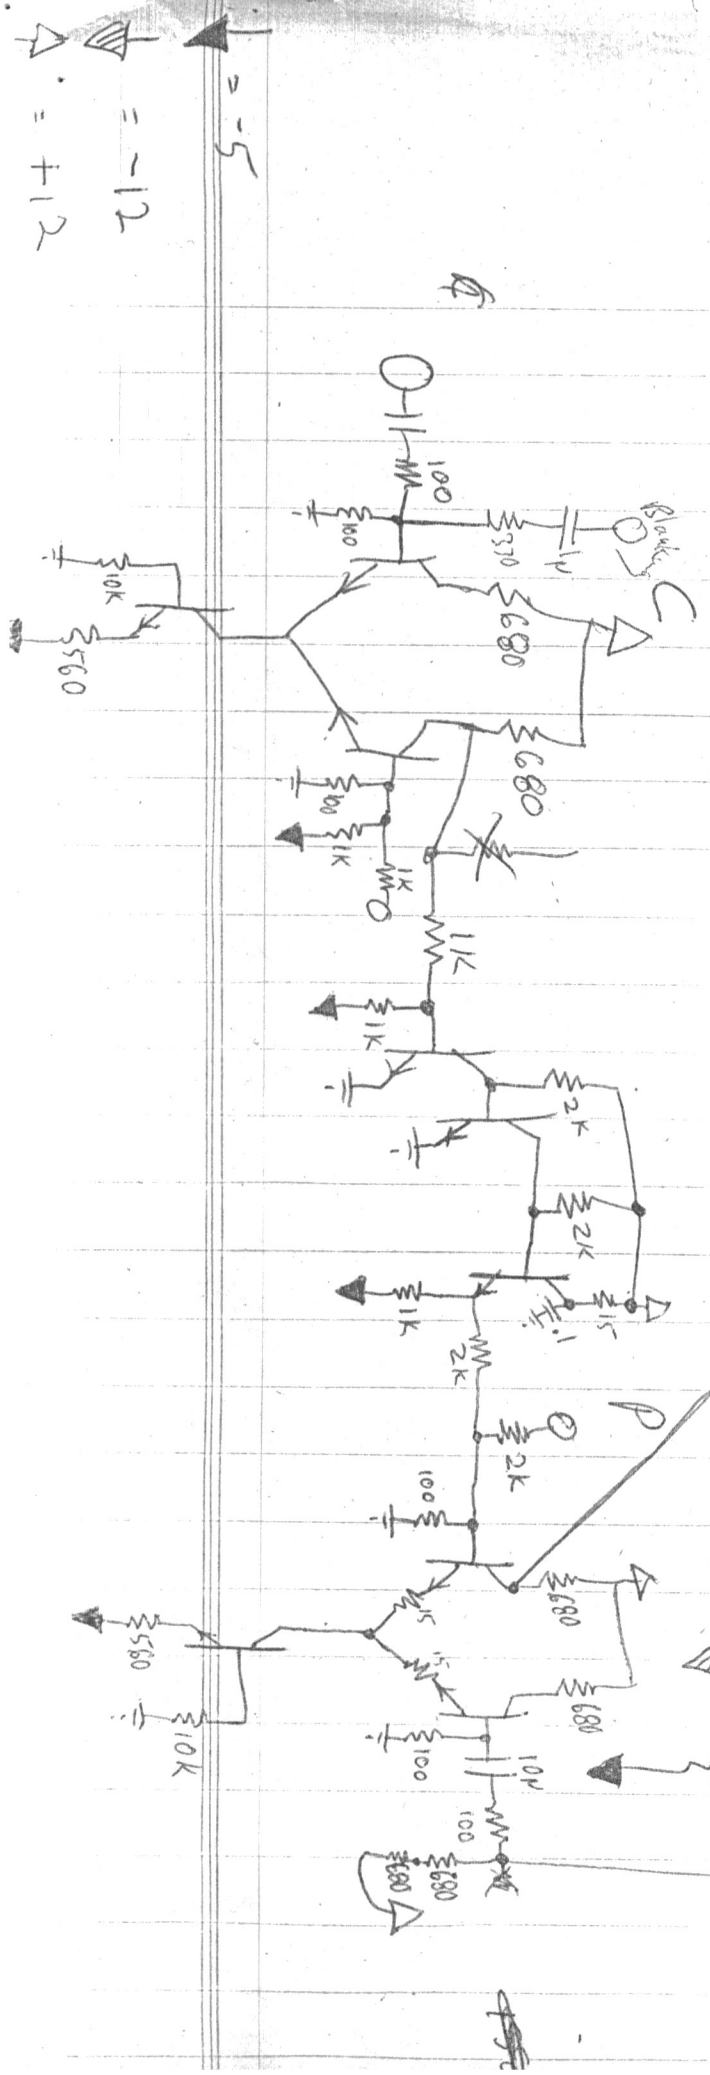 = -5
= -12
= +12
Blanking
C
100
100
370
1μ
680
10K
560
680
100
1K
1K
1K
1K
2K
2K
15
.1
1K
2K
P
2K
100
680
15
15
560
10K
680
100
10μ
100
680
680